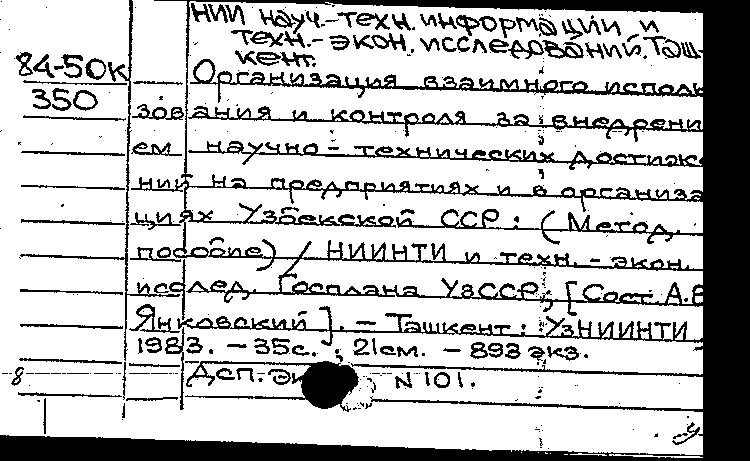 НИИ науч.-техн. информации и
техн.-экон. исследований. Таш-
кент.
84-50к Организация взаимного исполь
350
зования и контроля за внедрени
ем научно-технических достиже
ний на предприятиях и в организа
циях Узбекской ССР: (Метод.
пособие) / НИИНТИ и техн.-экон.
исслед. Госплана УзССР; [Сост. А.В
Янковский]. - Ташкент: УзНИИНТИ,
1983. - 35с.; 21см. - 893 экз.
8 Дсп. Эк N 101.